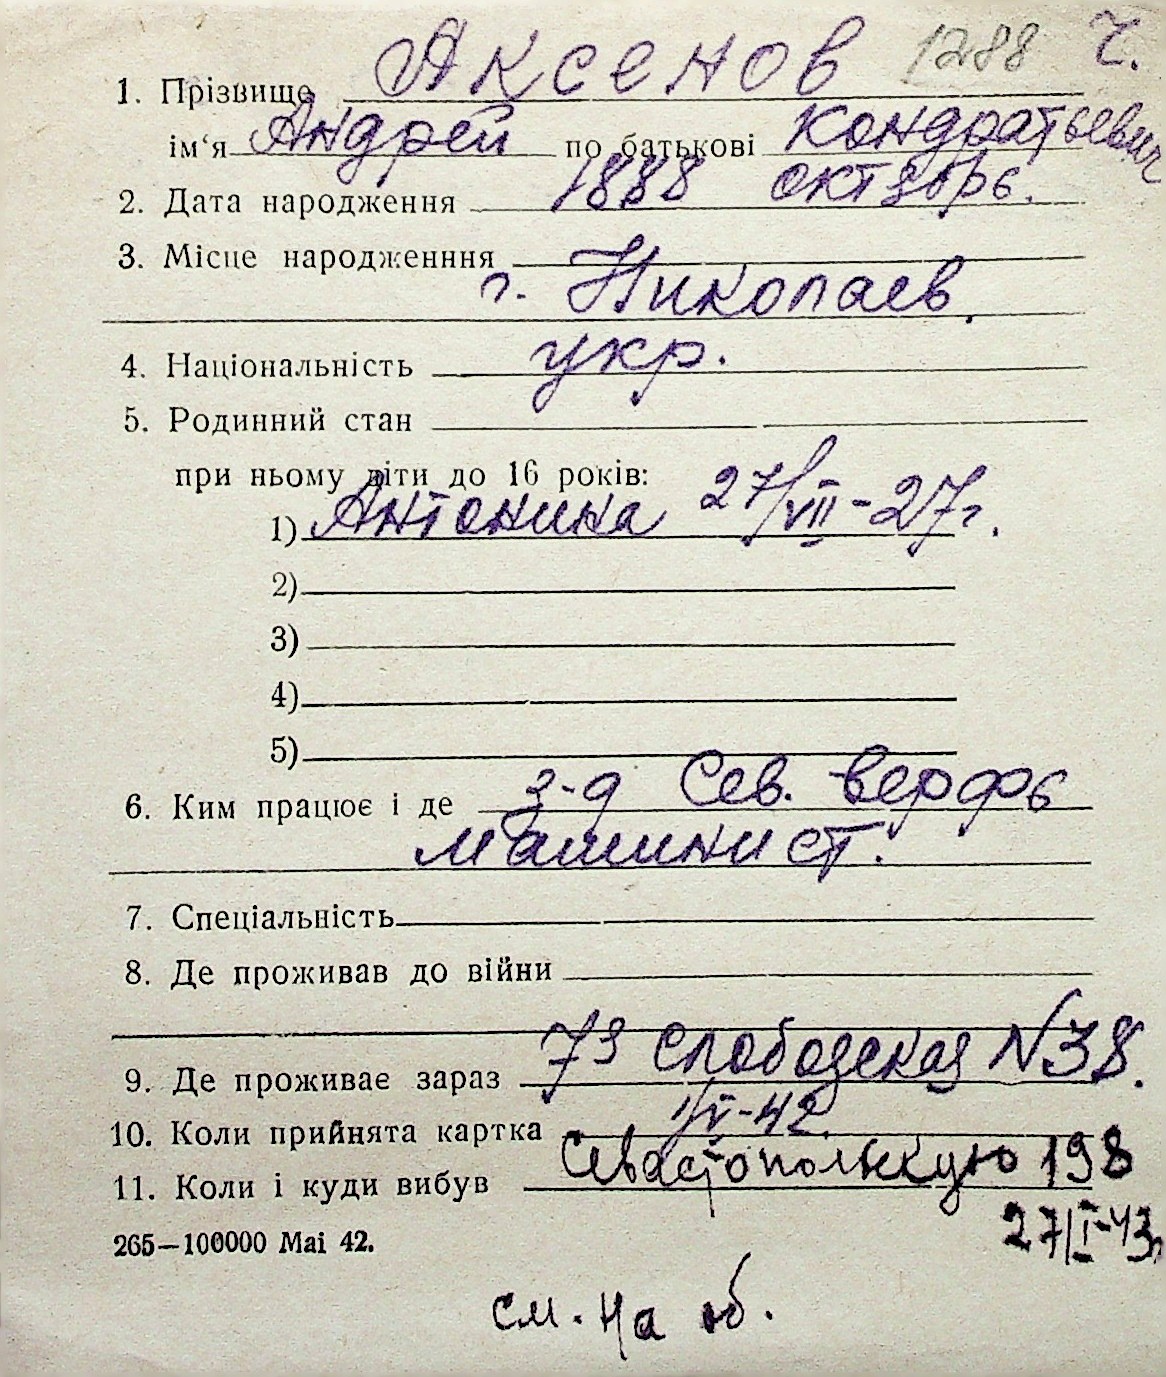 1. Прізвище Аксенов 1288 Ч.
ім'я Андрей по батькові Кондратьевич
2. Дата народження 1888 октябрь.
3. Місце народженння
г. Николаев.
4. Національність укр.
5. Родинний стан
при ньому діти до 16 років:
1) Антонина 27/VII-27г.
2)
3)
4)
5)
6. Ким працює і де з-д Сев. верфь
машинист.
7. Спеціальність
8. Де проживав до війни
9. Де проживає зараз 7я Слободская N38.
10. Коли прийнята картка 1/V-42.
11. Коли і куди вибув Севастопольскую 198
27/I-43г
265—100000 Mai 42.
см. на об.